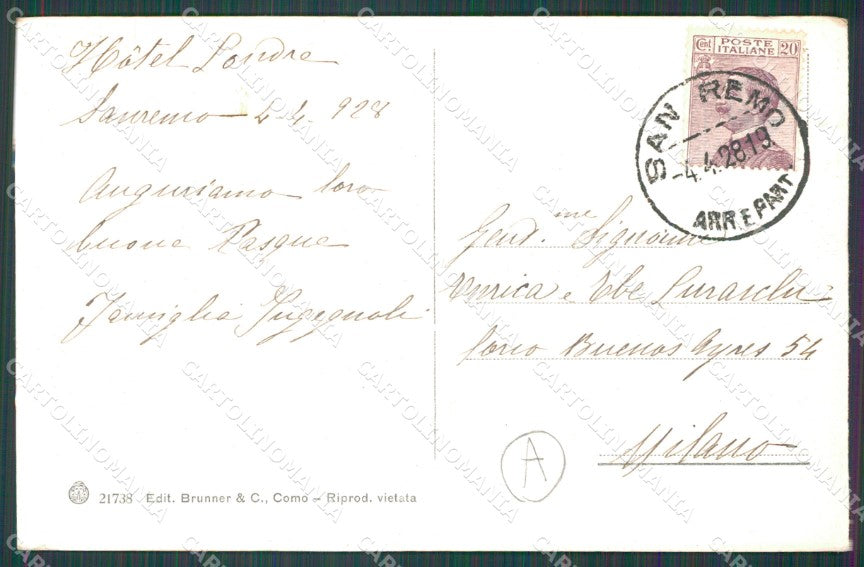 Hôtel Londra
Sanremo 4-4-928
Auguriamo loro
buona Pasqua
Famiglia Ingegnoli
POSTE
ITALIANE
Cent 20
SAN REMO
-4.4.28.19
ARR E PART.
Gent.me Signorine
Enrica e Ebe Luraschi
Corso Buenos Ayres 54
Milano
A
21738 Edit. Brunner & C., Como – Riprod. vietata
CARTOLINOMANIA